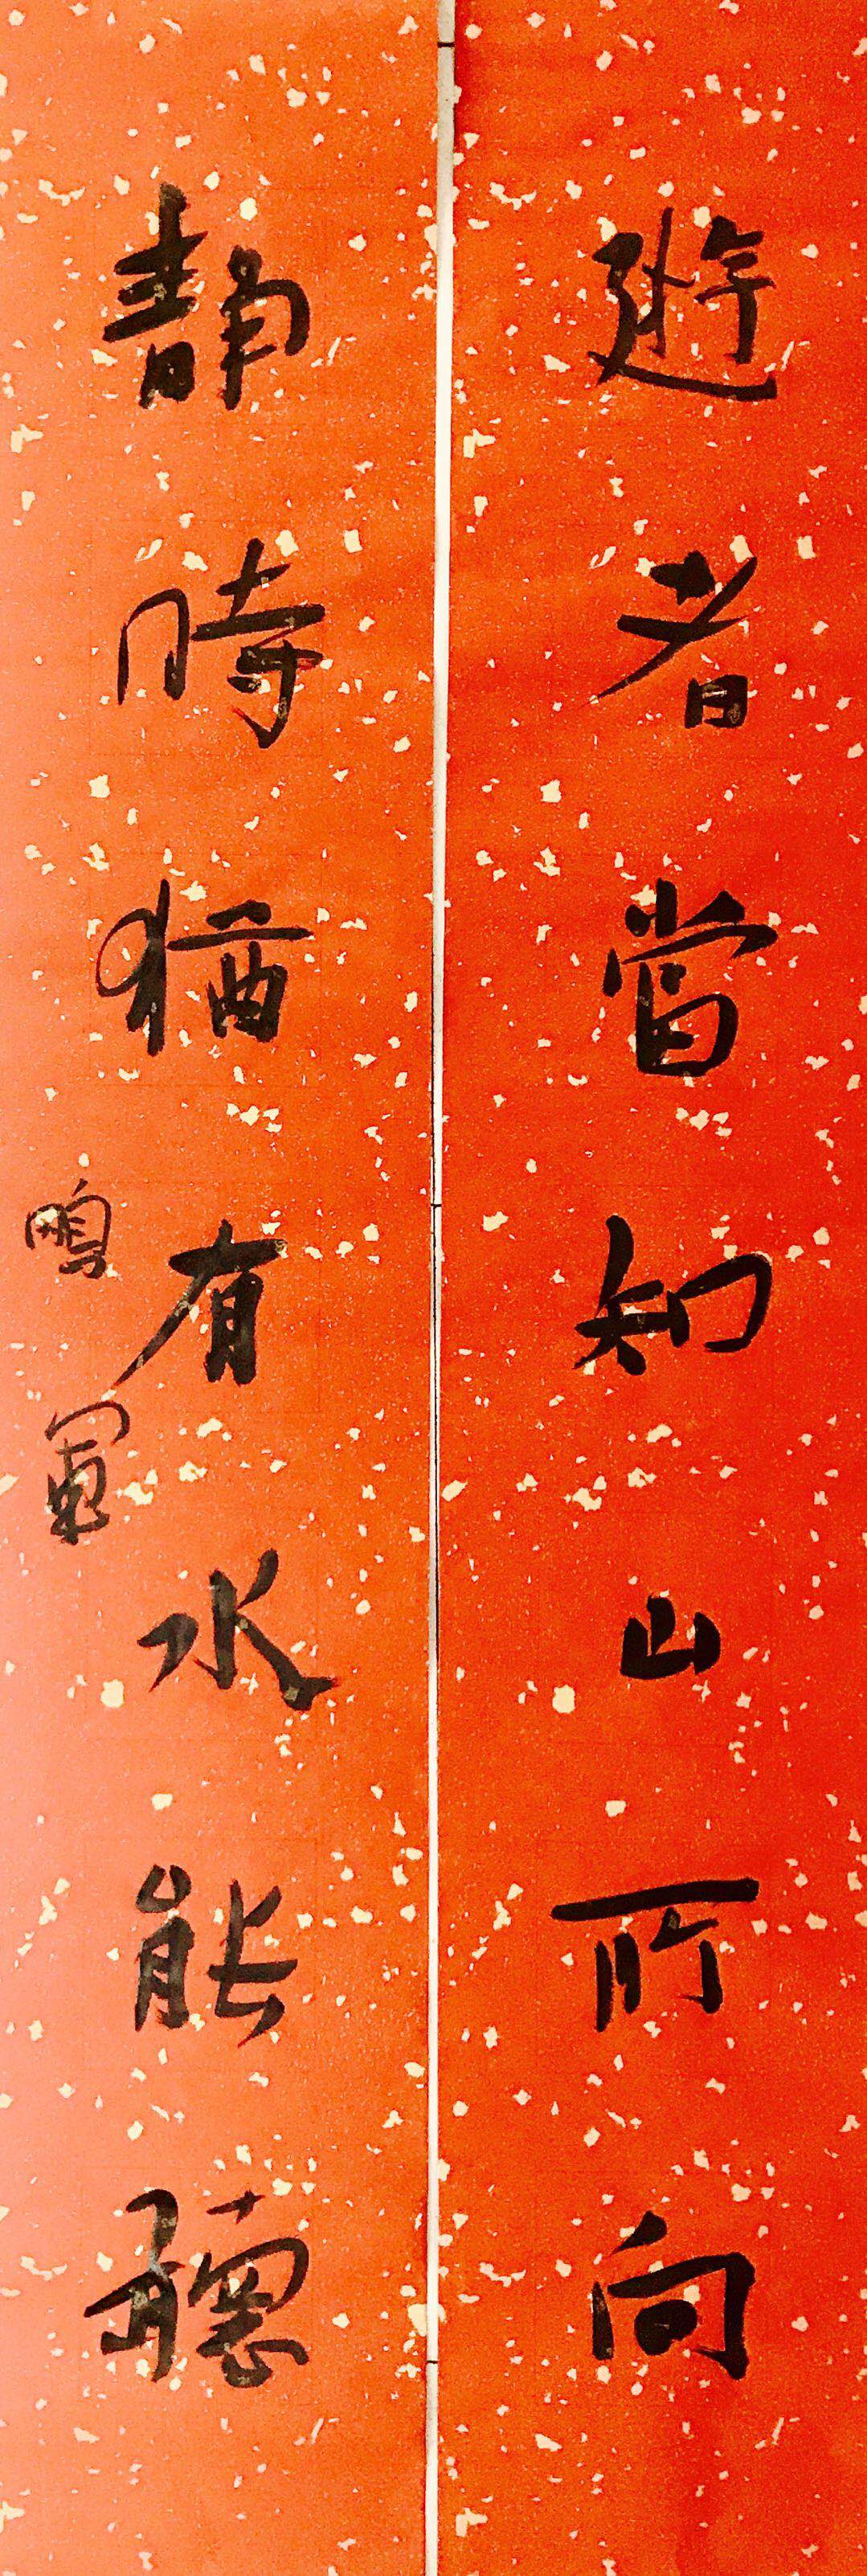 遊者當知山所向
靜時猶有水能聽
鳴軍